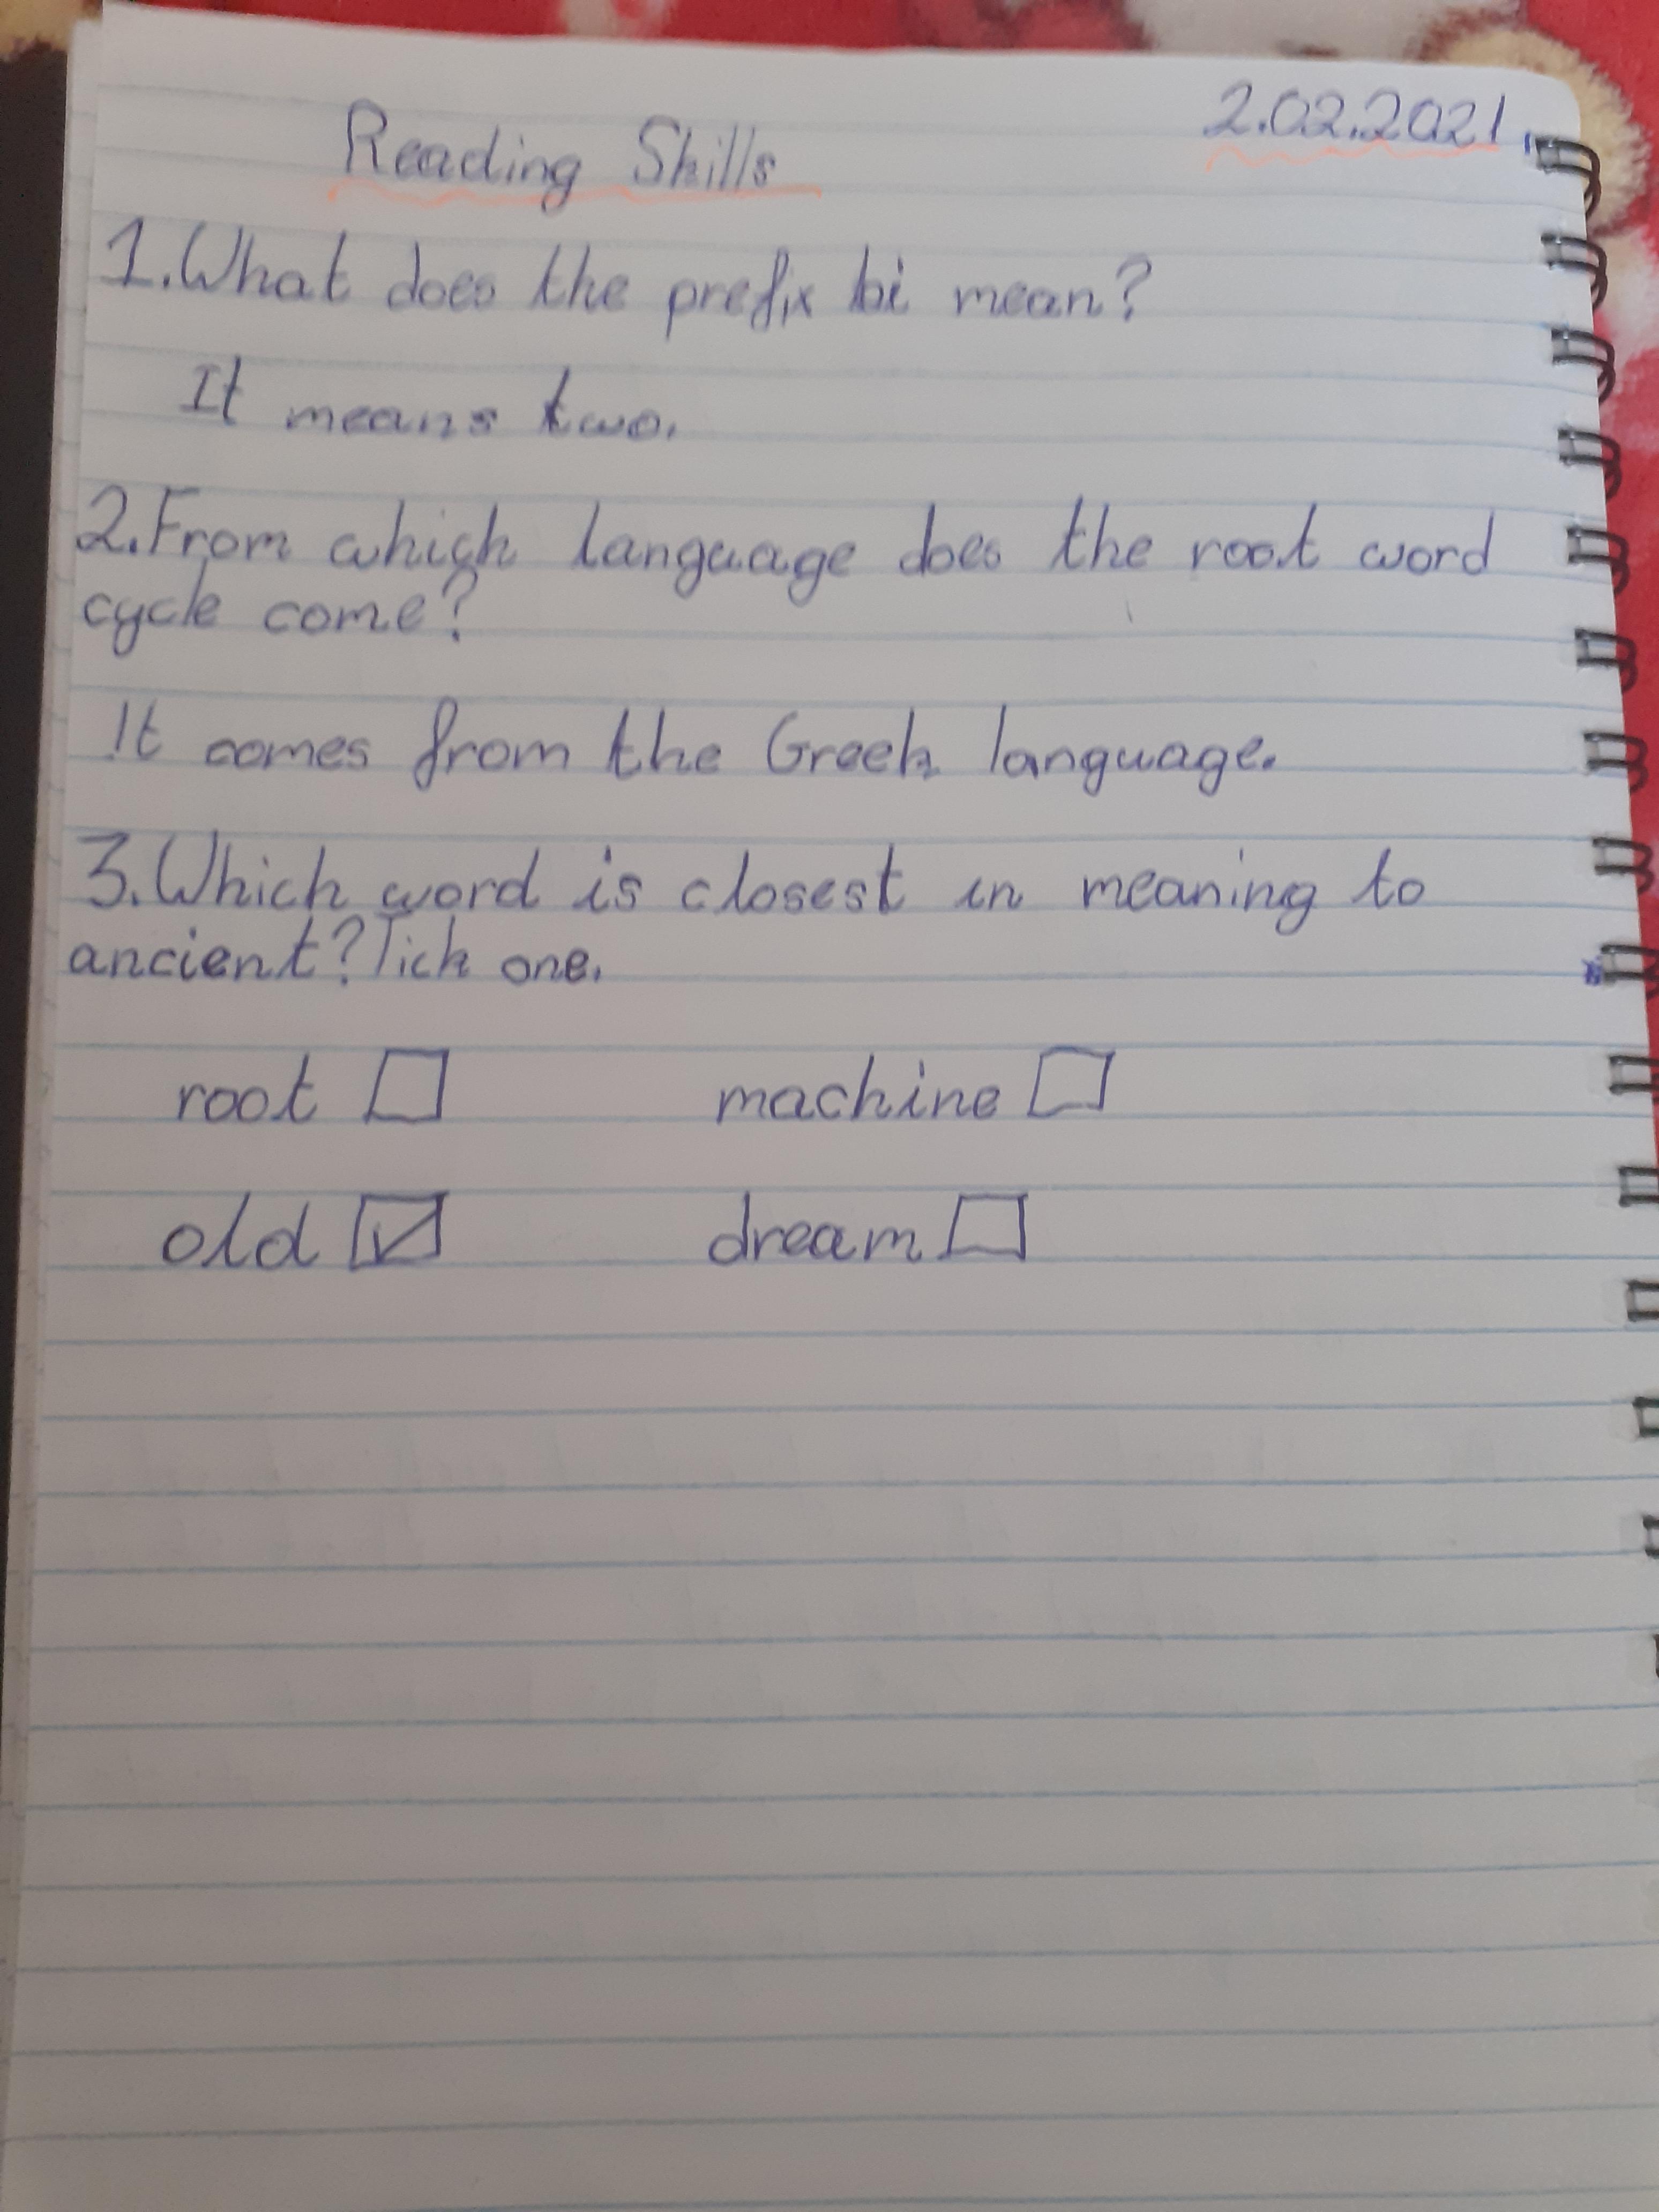 2.02.2021
Reading Skills
1.What does the prefix bi mean?
It means two.
2.From which language does the root word
cycle come?
It comes from the Greek language.
3.Which word is closest in meaning to
ancient? Tick one.
root ☐ machine ☐
old ☑ dream ☐